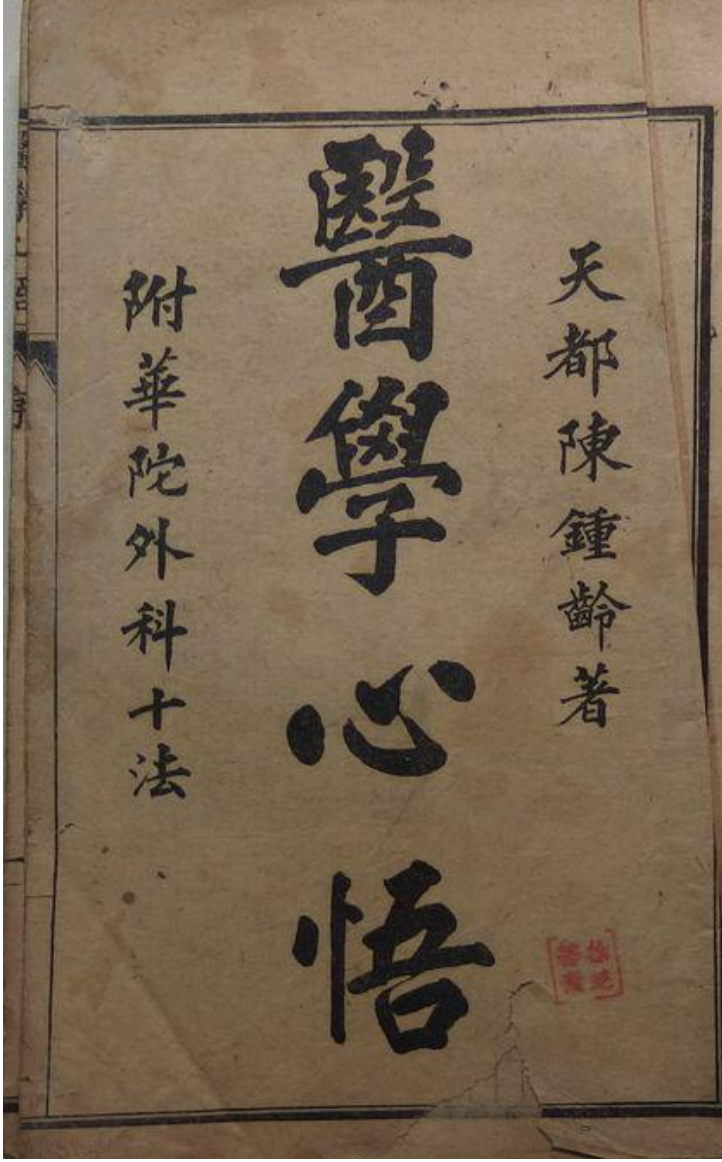 天都陳鍾齡著
醫學心悟
附華陀外科十法